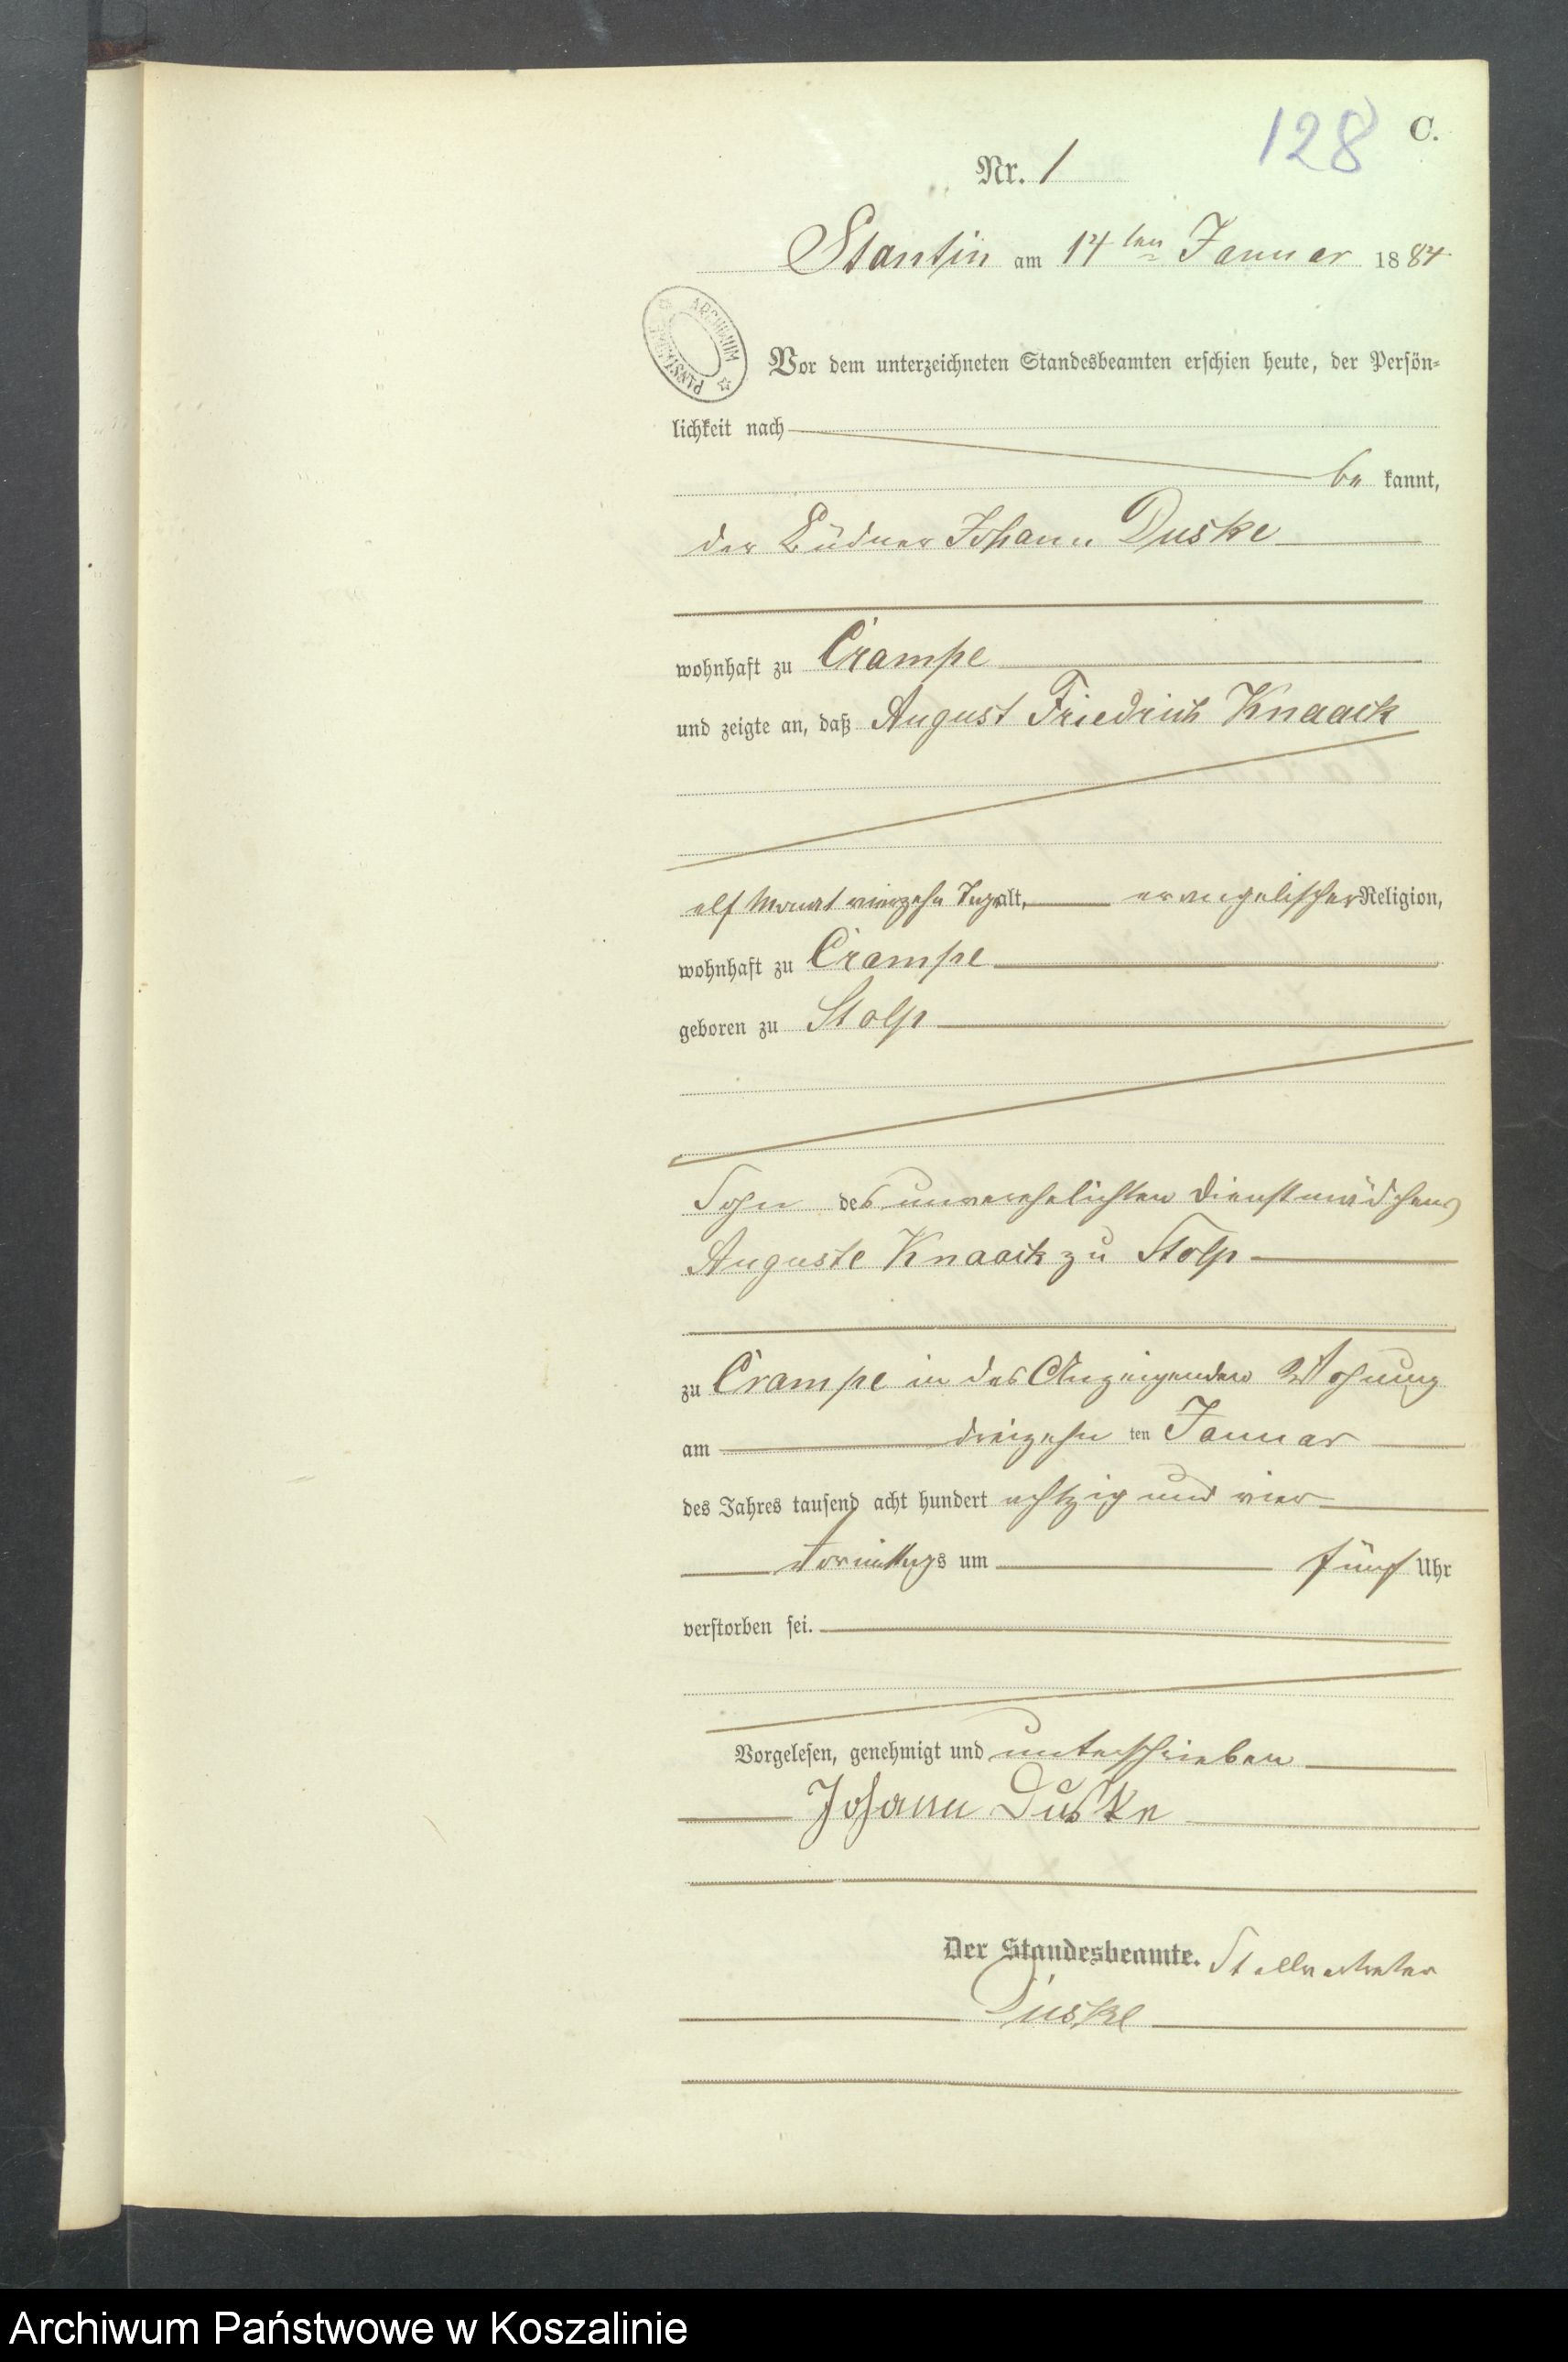 128 C.
Nr. 1
Stantin am 14ten Januar 1884
ARCHIWUM PAŃSTWOWE
Vor dem unterzeichneten Standesbeamten erschien heute, der Persön-
lichkeit nach
be kannt,
der Büdner Johann Duske
wohnhaft zu Crampe
und zeigte an, daß August Friedrich Knaack
elf Monat vierzehn Tage alt, evangelischer Religion,
wohnhaft zu Crampe
geboren zu Stolp
Sohn des unverehelichten Dienstmädchens
Auguste Knaack zu Stolp
zu Crampe in des Anzeigenden Wohnung
am dreizehn ten Januar
des Jahres tausend acht hundert achtzig und vier
Vormittags um fünf Uhr
verstorben sei.
Vorgelesen, genehmigt und unterschrieben
Johann Duske
Der Standesbeamte. Stellvertreter
Duske
Archiwum Państwowe w Koszalinie